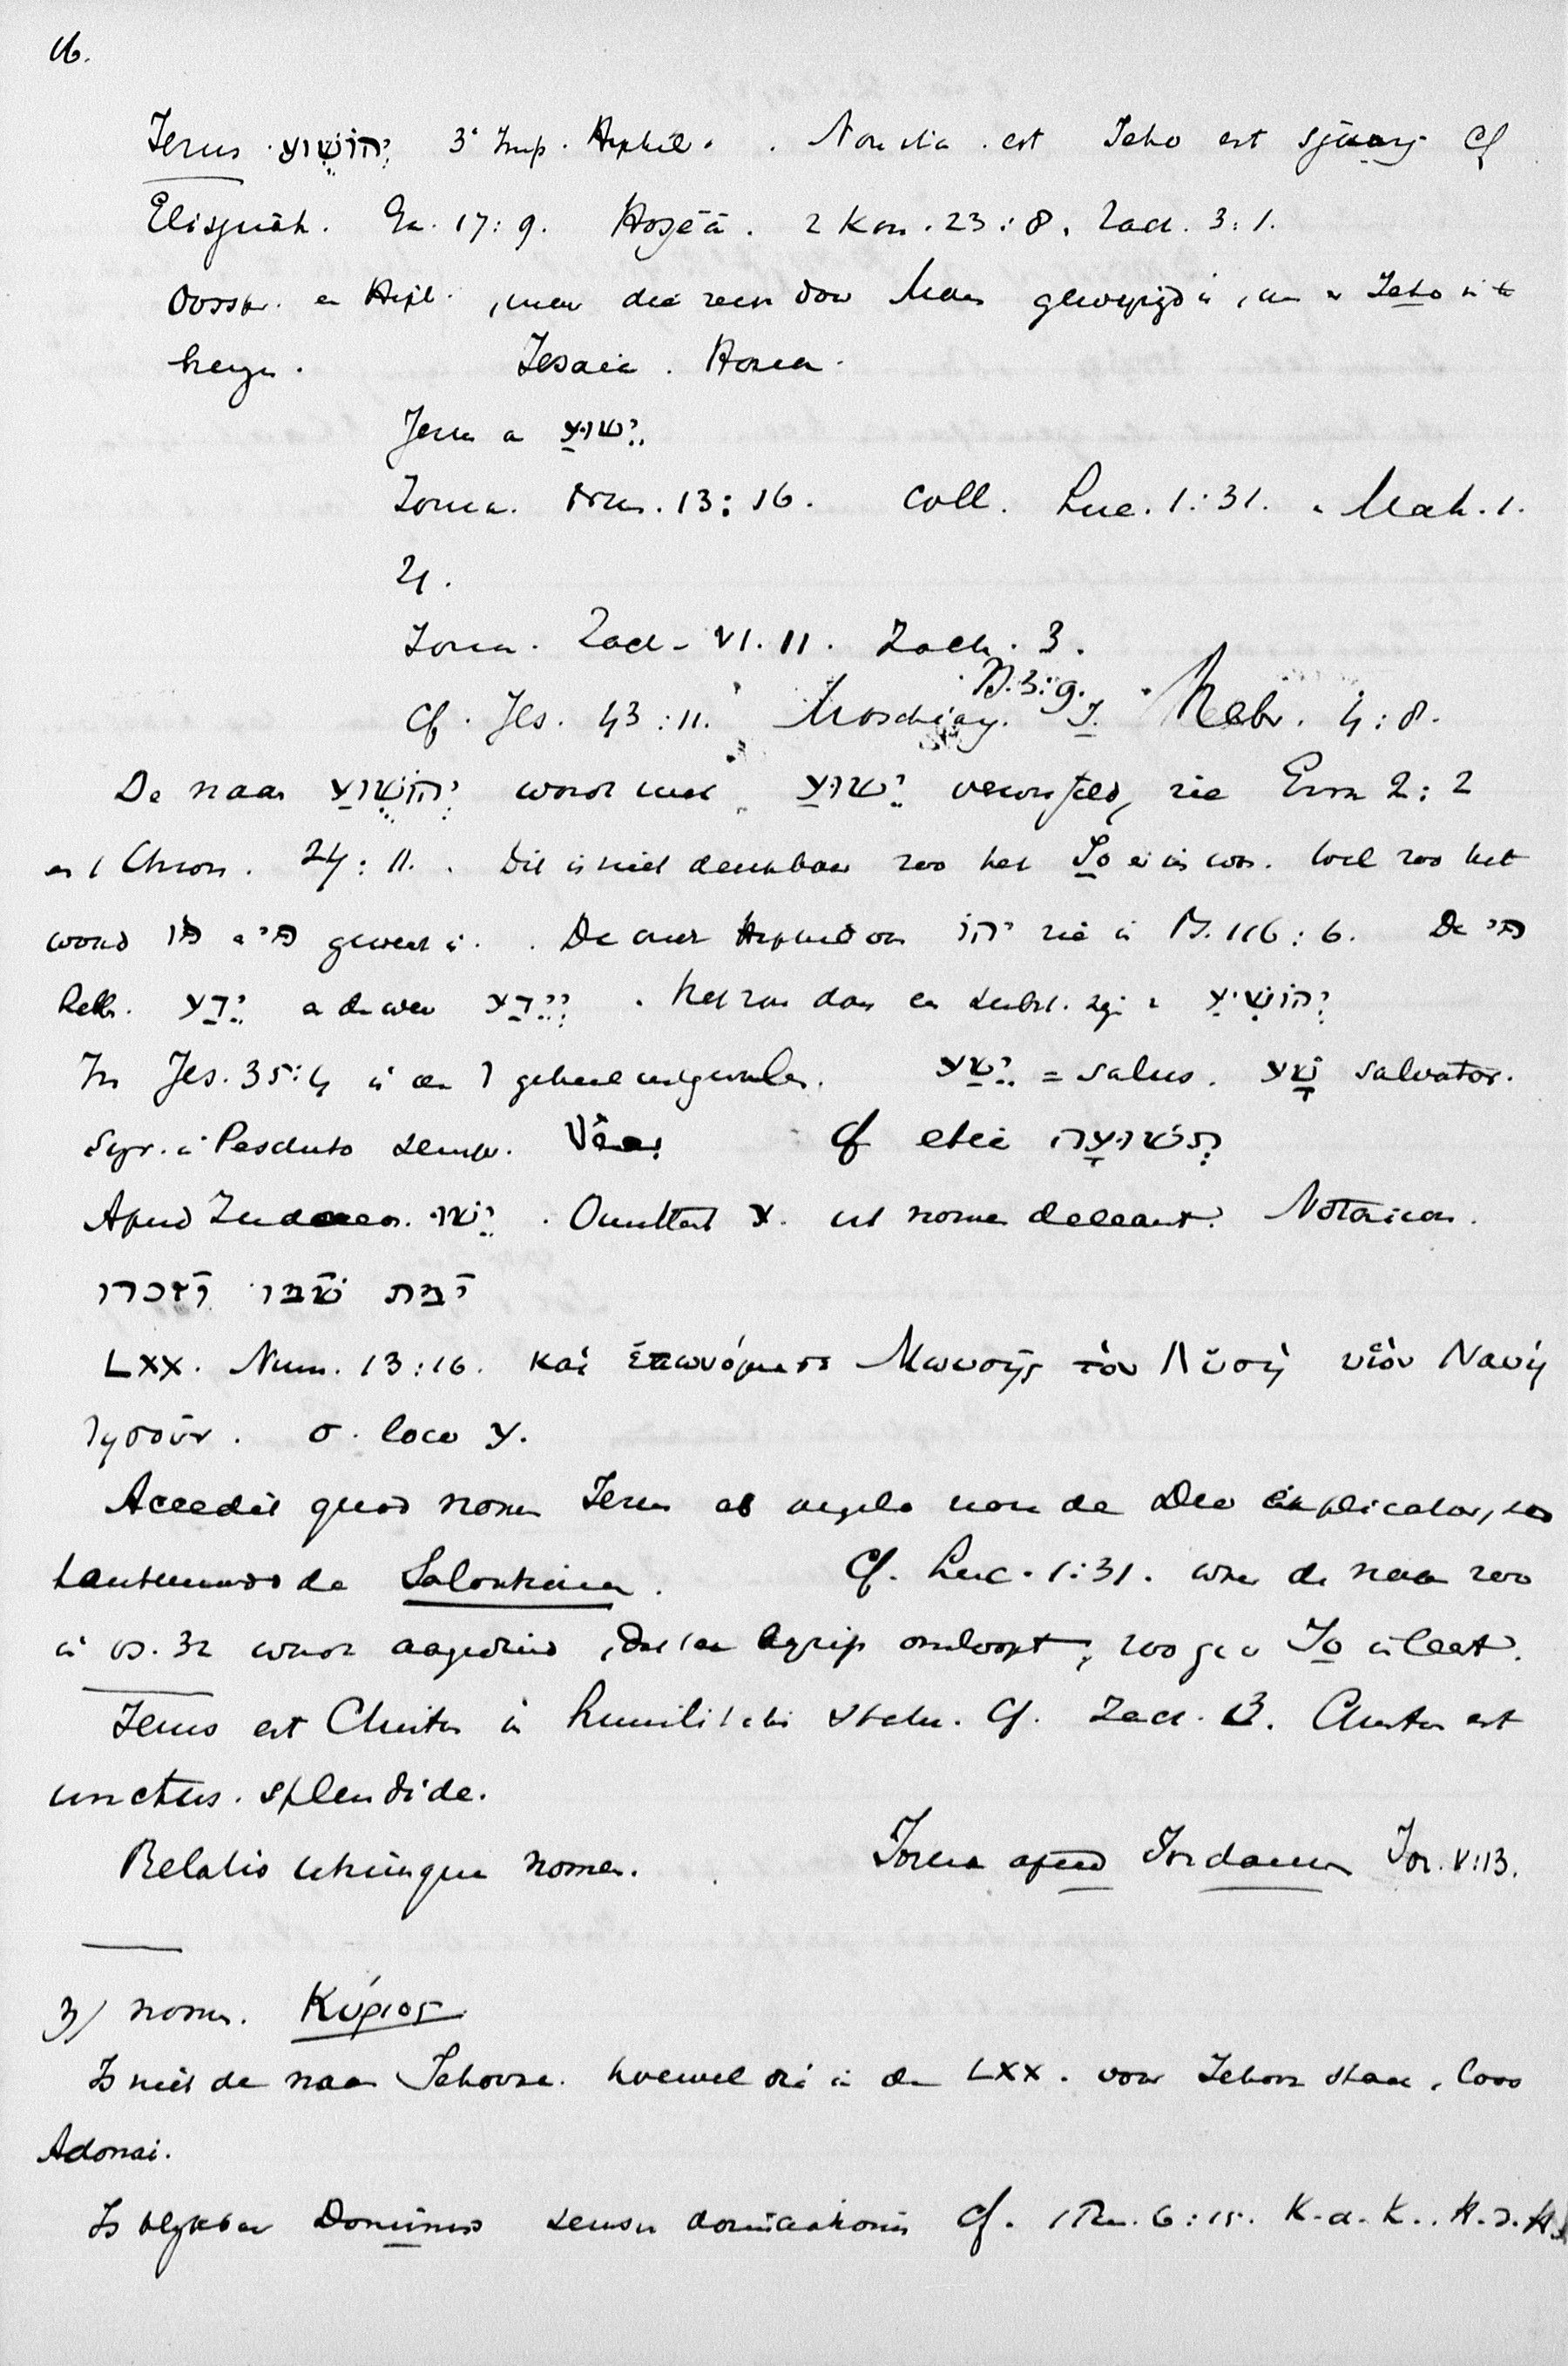 16.
Jesus יְהוֹשֻׁעַ 3e Imp. Hiphil. . Non ita est Jeho est Cf
Elisjuah. Gn. 17:9. Hoséa. 2 Kon. 23:8. Zach. 3:1.
Oorspr. en Hiph. , maar die reeds door gewijzigd is, en Jeho in te
. Jesaia. Hosea.
Jesus a יֵשׁוּעַ
Josua. Num. 13:16. Coll. Luc. 1:31. Math. 1.
21.
Josua. Zach. VI. 11. Zach. 3.
Ps. 3:9.
Cf. Jes. 43:11. Moschiag. J. Hebr. 4:8.
De naam יְהוֹשֻׁעַ wordt met יֵשׁוּעַ verwisseld, zie Esra 2:2
en 1 Chron. 24:11. Dit is niet denkbaar zoo het Jo er in was. Wel zoo het
woord geweest is. De Hiphil van zie in Ps. 116:6. De
Hebr. יֵדַע en de יְיֵדַע . Het zou dan een subst. zijn יְהוֹשִׁיעַ
In Jes. 35:4 is de ו geheel uitgevallen. יֵשַׁע = salus. salvator.
Syr. in Peschito semper. Cf etiam תְּשׁוּעָה
Apud Judaeos. יֵשׁוּ . Omittunt ע. ut nomen deleant. Notaricon.
ימח שמו וזכרו
LXX. Num. 13:16. καὶ ἐπωνόμασε Μωυσῆς τὸν Αὐσῆ υἱὸν Ναυῆ
Ἰησοῦν. σ. loco ע.
Accedit quod nomen Jesus ab angelo non de Deo explicatur, sed
tantummodo de Salvatione. Cf. Luc. 1:31. waar de naam zoo
in vs. 32 wordt aangeduid, dat het begrip omloopt, zoo ge er Jo in leest.
Jesus est Christus in humilitatis statu. Cf. Zach. 3. Christus est
unctus. splendide.
Relatio utriusque nomen. Josua apud Jordanem Jos. V:13.
3) nomen. Κύριος
Is niet de naam Jehova. hoewel die in de LXX. voor Jehova staat, loco
Adonai.
Is blijkbaar Dominus sensu dominationis Cf. 1 Tim. 6:15. K. d. K. . H. d. H.